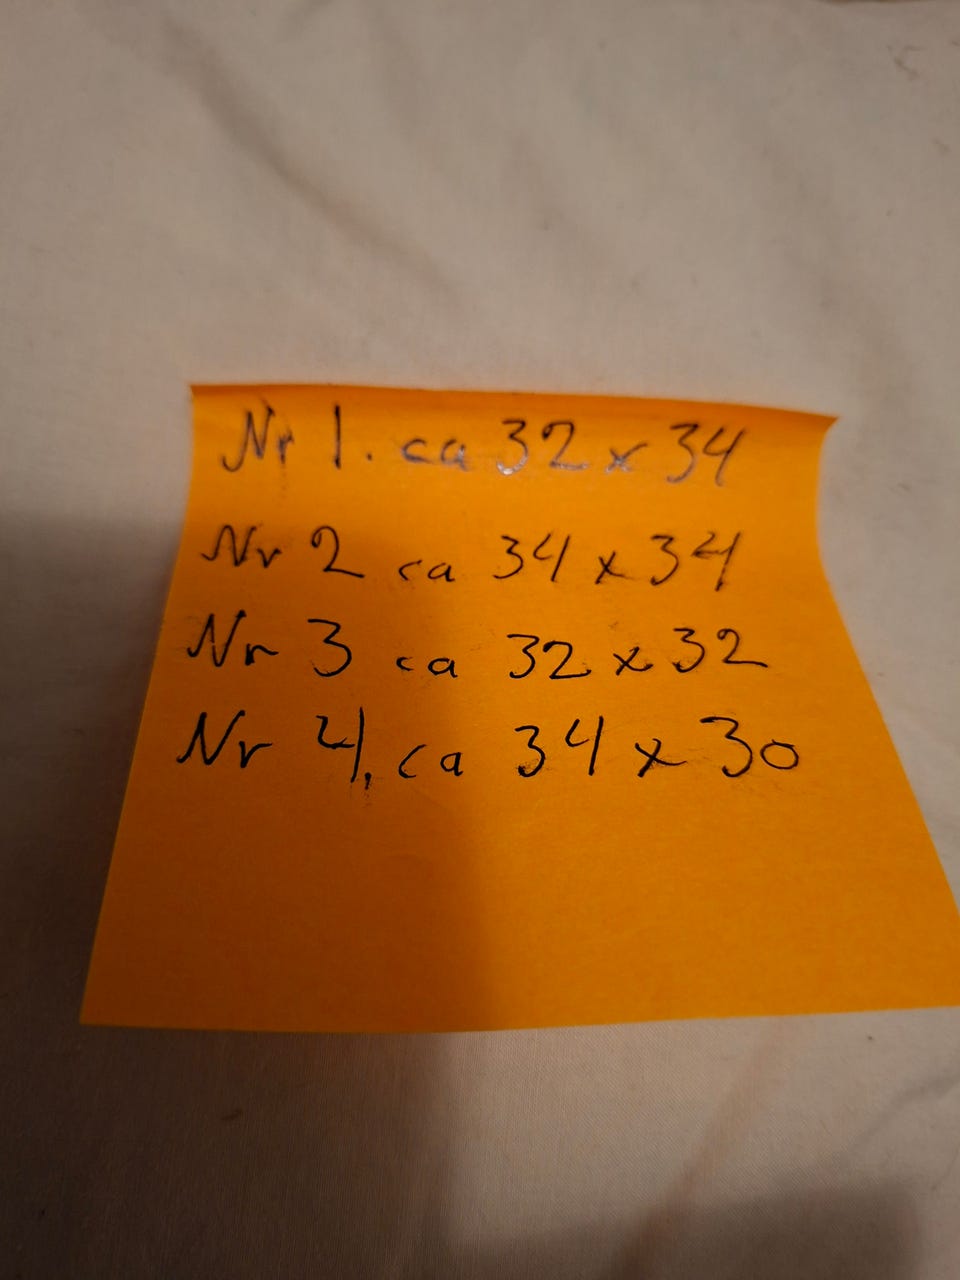 Nr 1. ca 32 x 34
Nr 2 ca 34 x 34
Nr 3 ca 32 x 32
Nr 4. ca 34 x 30